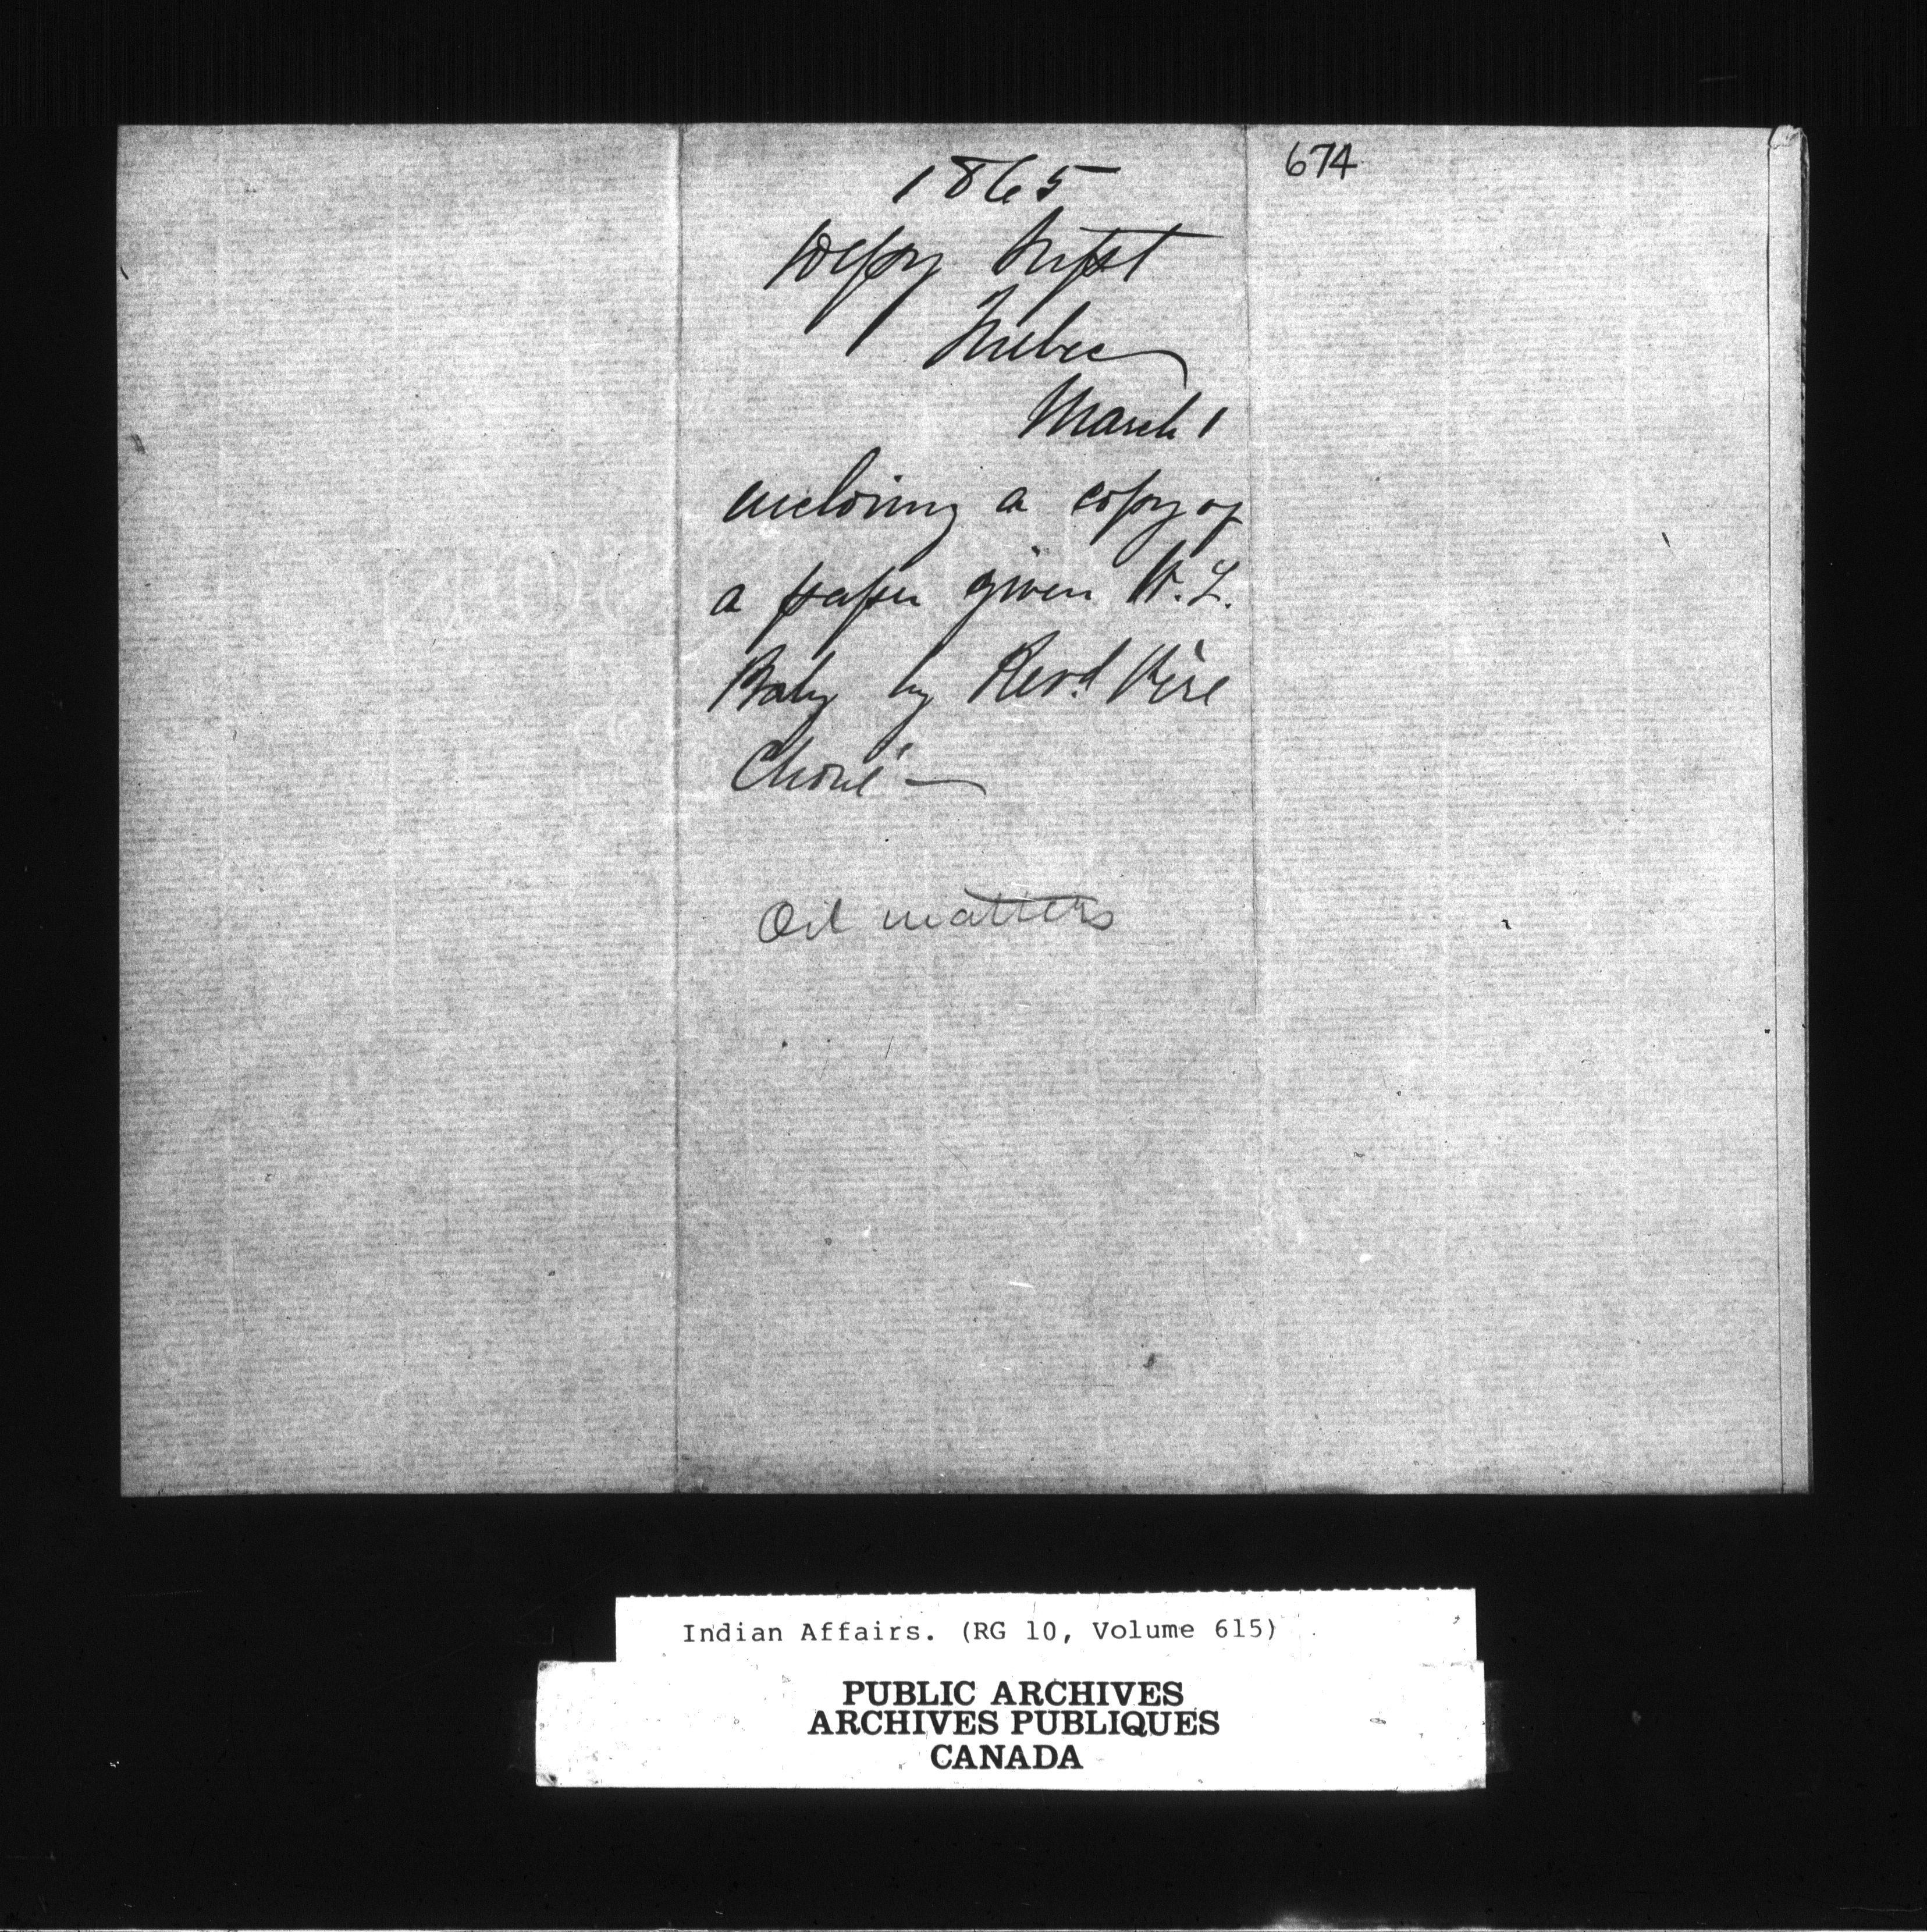 674
1865
Depy Supt
Quebec
March 1
inclosing a copy of
a paper given W. L.
Baby by Revd Père
Choné —
Oil matters
Indian Affairs. (RG 10, Volume 615)
PUBLIC ARCHIVES
ARCHIVES PUBLIQUES
CANADA